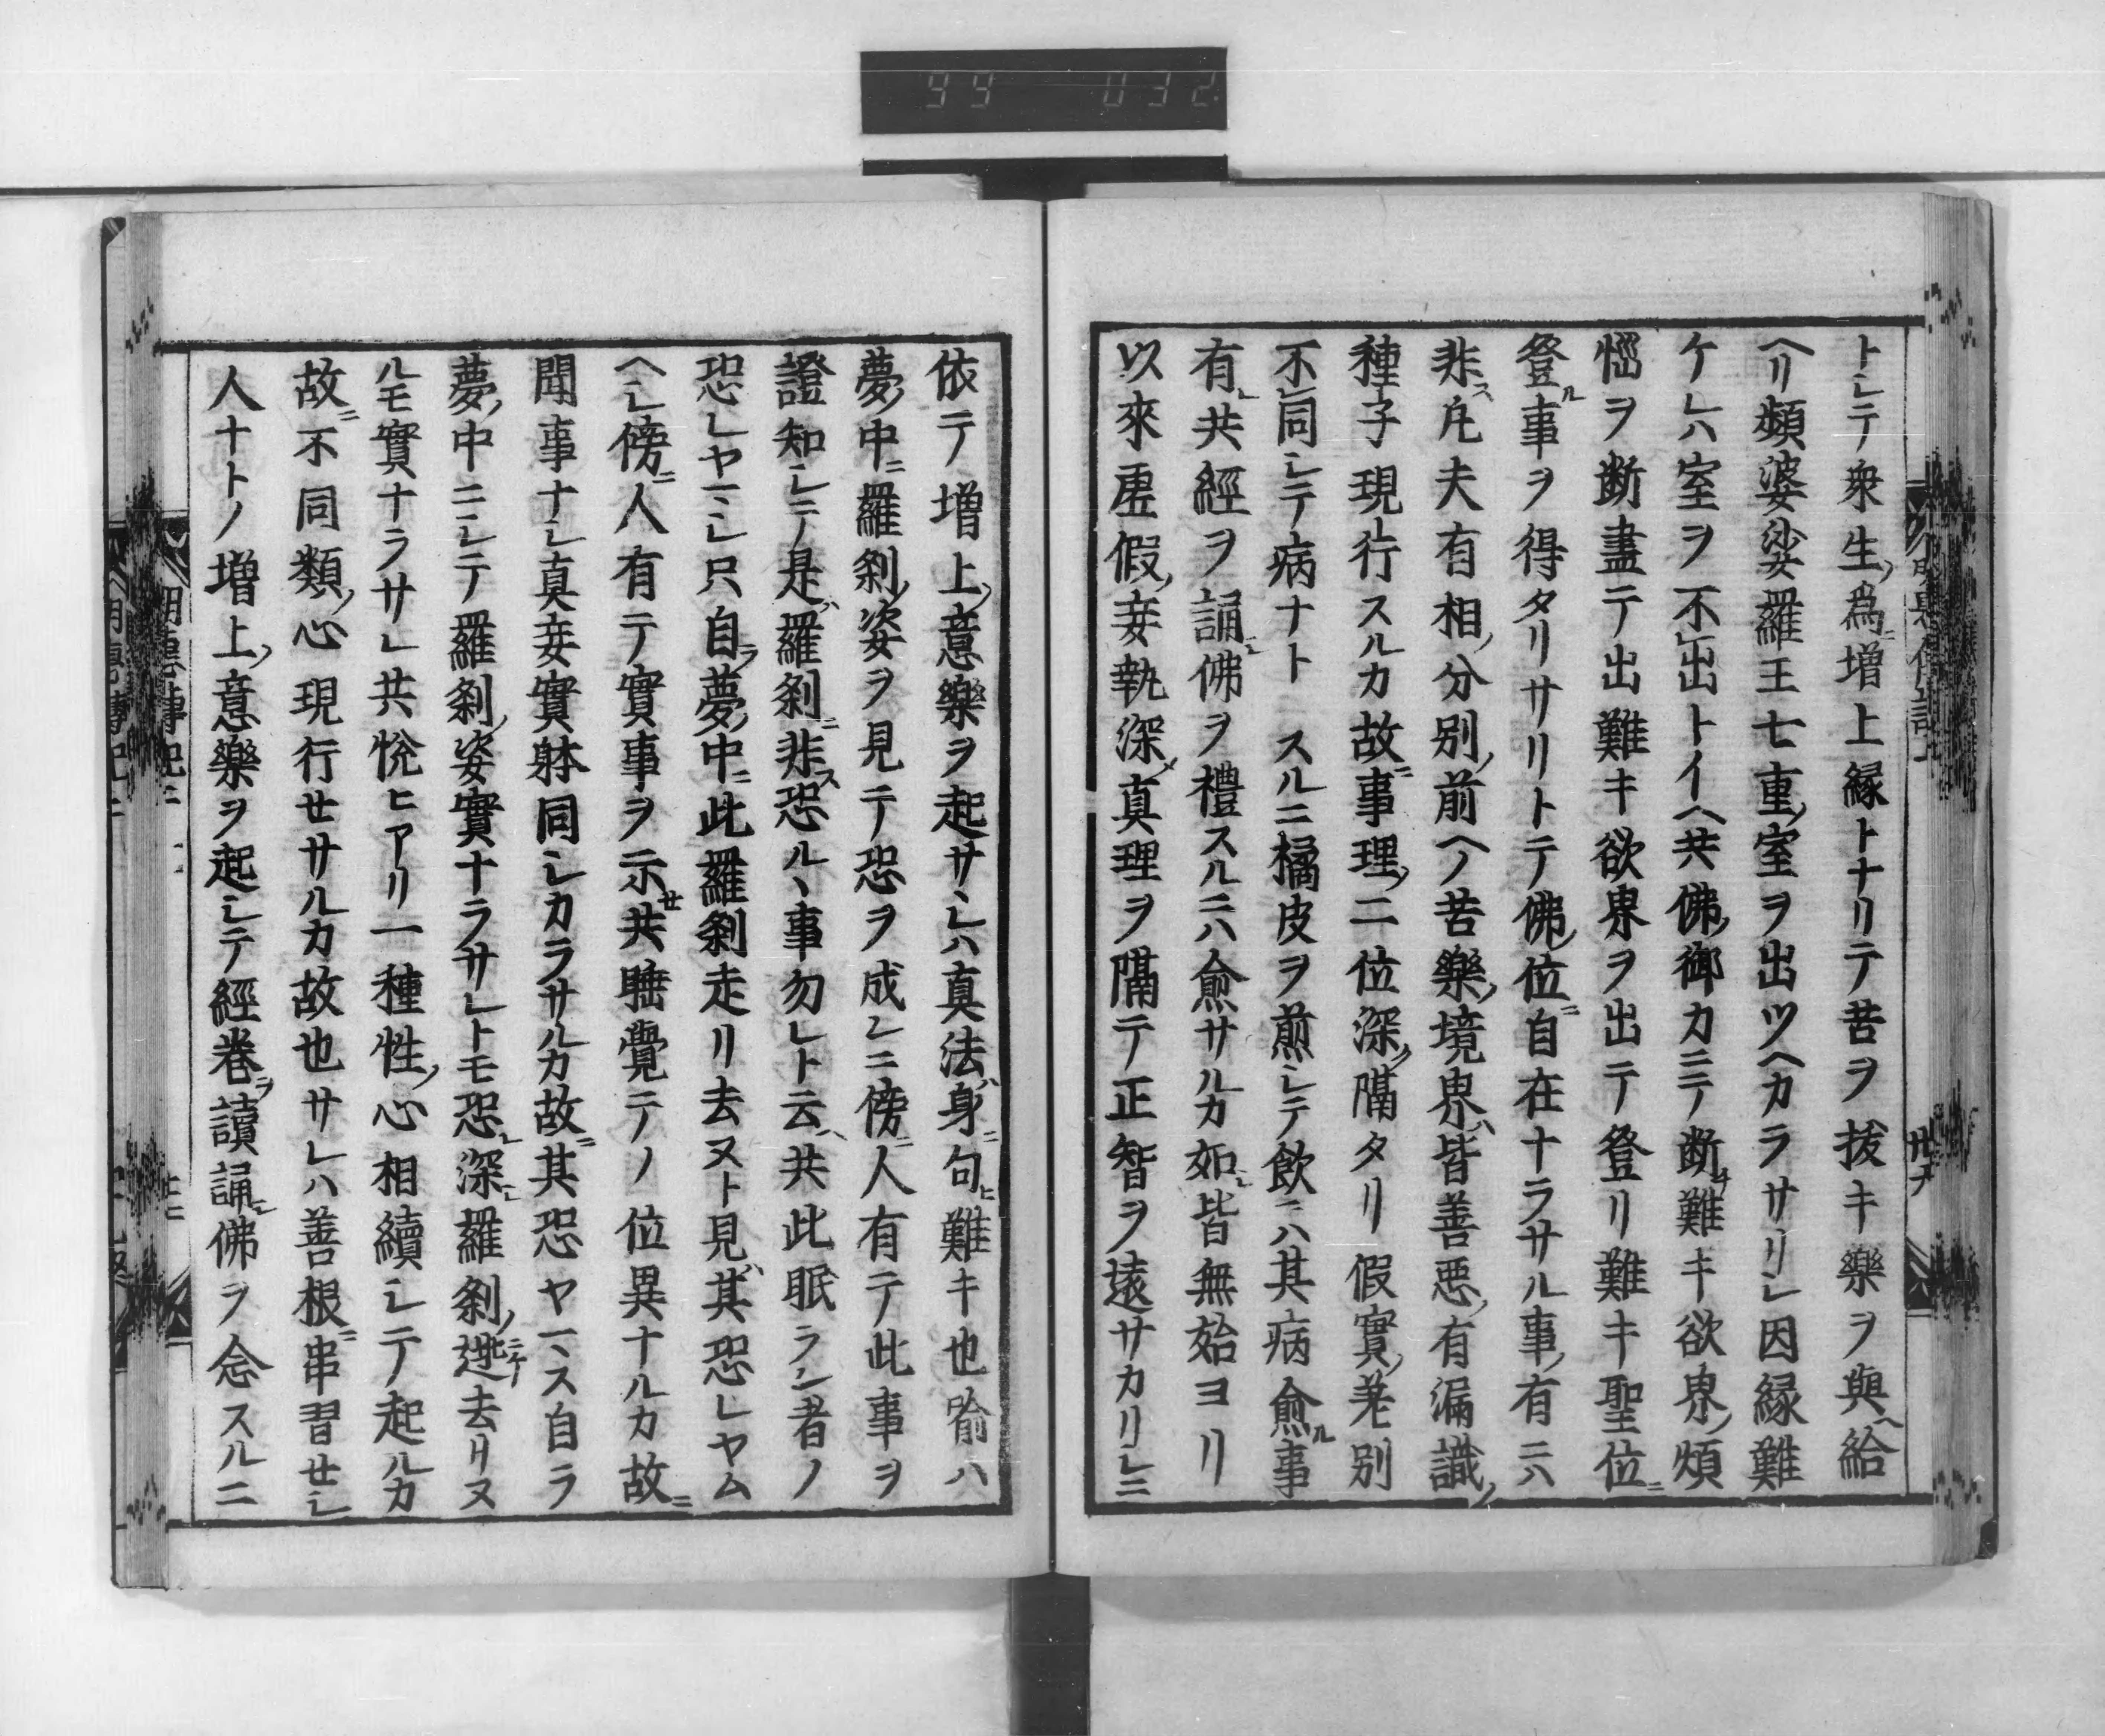 99 032
トシテ衆生ノ為ニ増上縁トナリテ苦ヲ拔キ樂ヲ與ヘ給
ヘリ頻婆娑羅王七重ノ室ヲ出ツヘカラサリシ因縁難
ケレハ室ヲ不出トイヘ共佛ノ御カニテ断チ難キ欲界ノ煩
惱ヲ断盡テ出難キ欲界ヲ出テ登リ難キ聖位ニ
登ル事ヲ得タリサリトテ佛ノ位ニ自在ナラサル事ノ有ニハ
非ス凡夫有相ノ分別ノ前ヘノ苦樂ノ境界ハ皆善悪ノ有漏識ノ
種子現行スルカ故ニ事理ノ二位深ク隔タリ假實ノ差別
不同シテ病ナトスルニ橘皮ヲ煎シテ飲ニハ其病愈ル事
有レ共經ヲ誦シ佛ヲ禮スルニハ愈サルカ如シ皆無始ヨリ
以來虚假ノ妄執深メ真理ヲ隔テ正智ヲ遠サカリシニ
依テ増上ノ意樂ヲ起サヽレハ真法ハ身ニ匂ヒ難キ也喩ハ
夢ノ中ニ羅刹ノ姿ヲ見テ恐ヲ成レニ傍ニ人有テ此事ヲ
證知シテ是ハ羅刹ニ非ス恐ルヽ事勿レト云ヘ共此眠ラン者ノ
恐レヤマヽシ只自ラ夢ノ中ニ此羅刹走リ去ヌト見ハ其恐レヤム
ヘシ傍ニ人有テ實事ヲ示セ共睡覺テノ位異ナルカ故ニ
聞事ナシ真妄實躰同シカラサルカ故ニ其恐ヤマス自ラ
夢ノ中ニシテ羅刹ノ姿實ナラサレトモ恐レ深シ羅刹ノ逃ニケ去リヌ
ルモ實ナラサレ共悦ヒアリ一種性ノ心相續シテ起ルカ
故ニ不同類ノ心現行セサルカ故也サレハ善根ニ串習セシ
人ナトノ増上ノ意樂ヲ起シテ經巻ヲ讀誦シ佛ヲ念スルニ